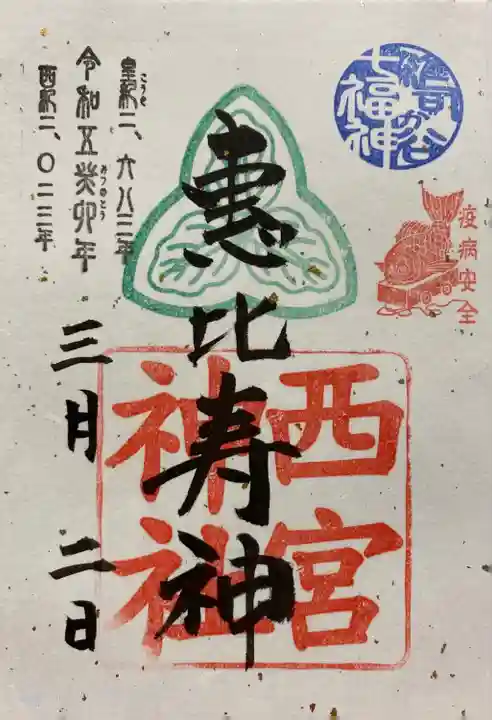 雑司が谷
七福神
疫病安全
恵比寿神
西宮
神社
皇紀二、六八三年
こうき
令和五癸卯年
みづのとう
西紀二、〇二三年
三月二日